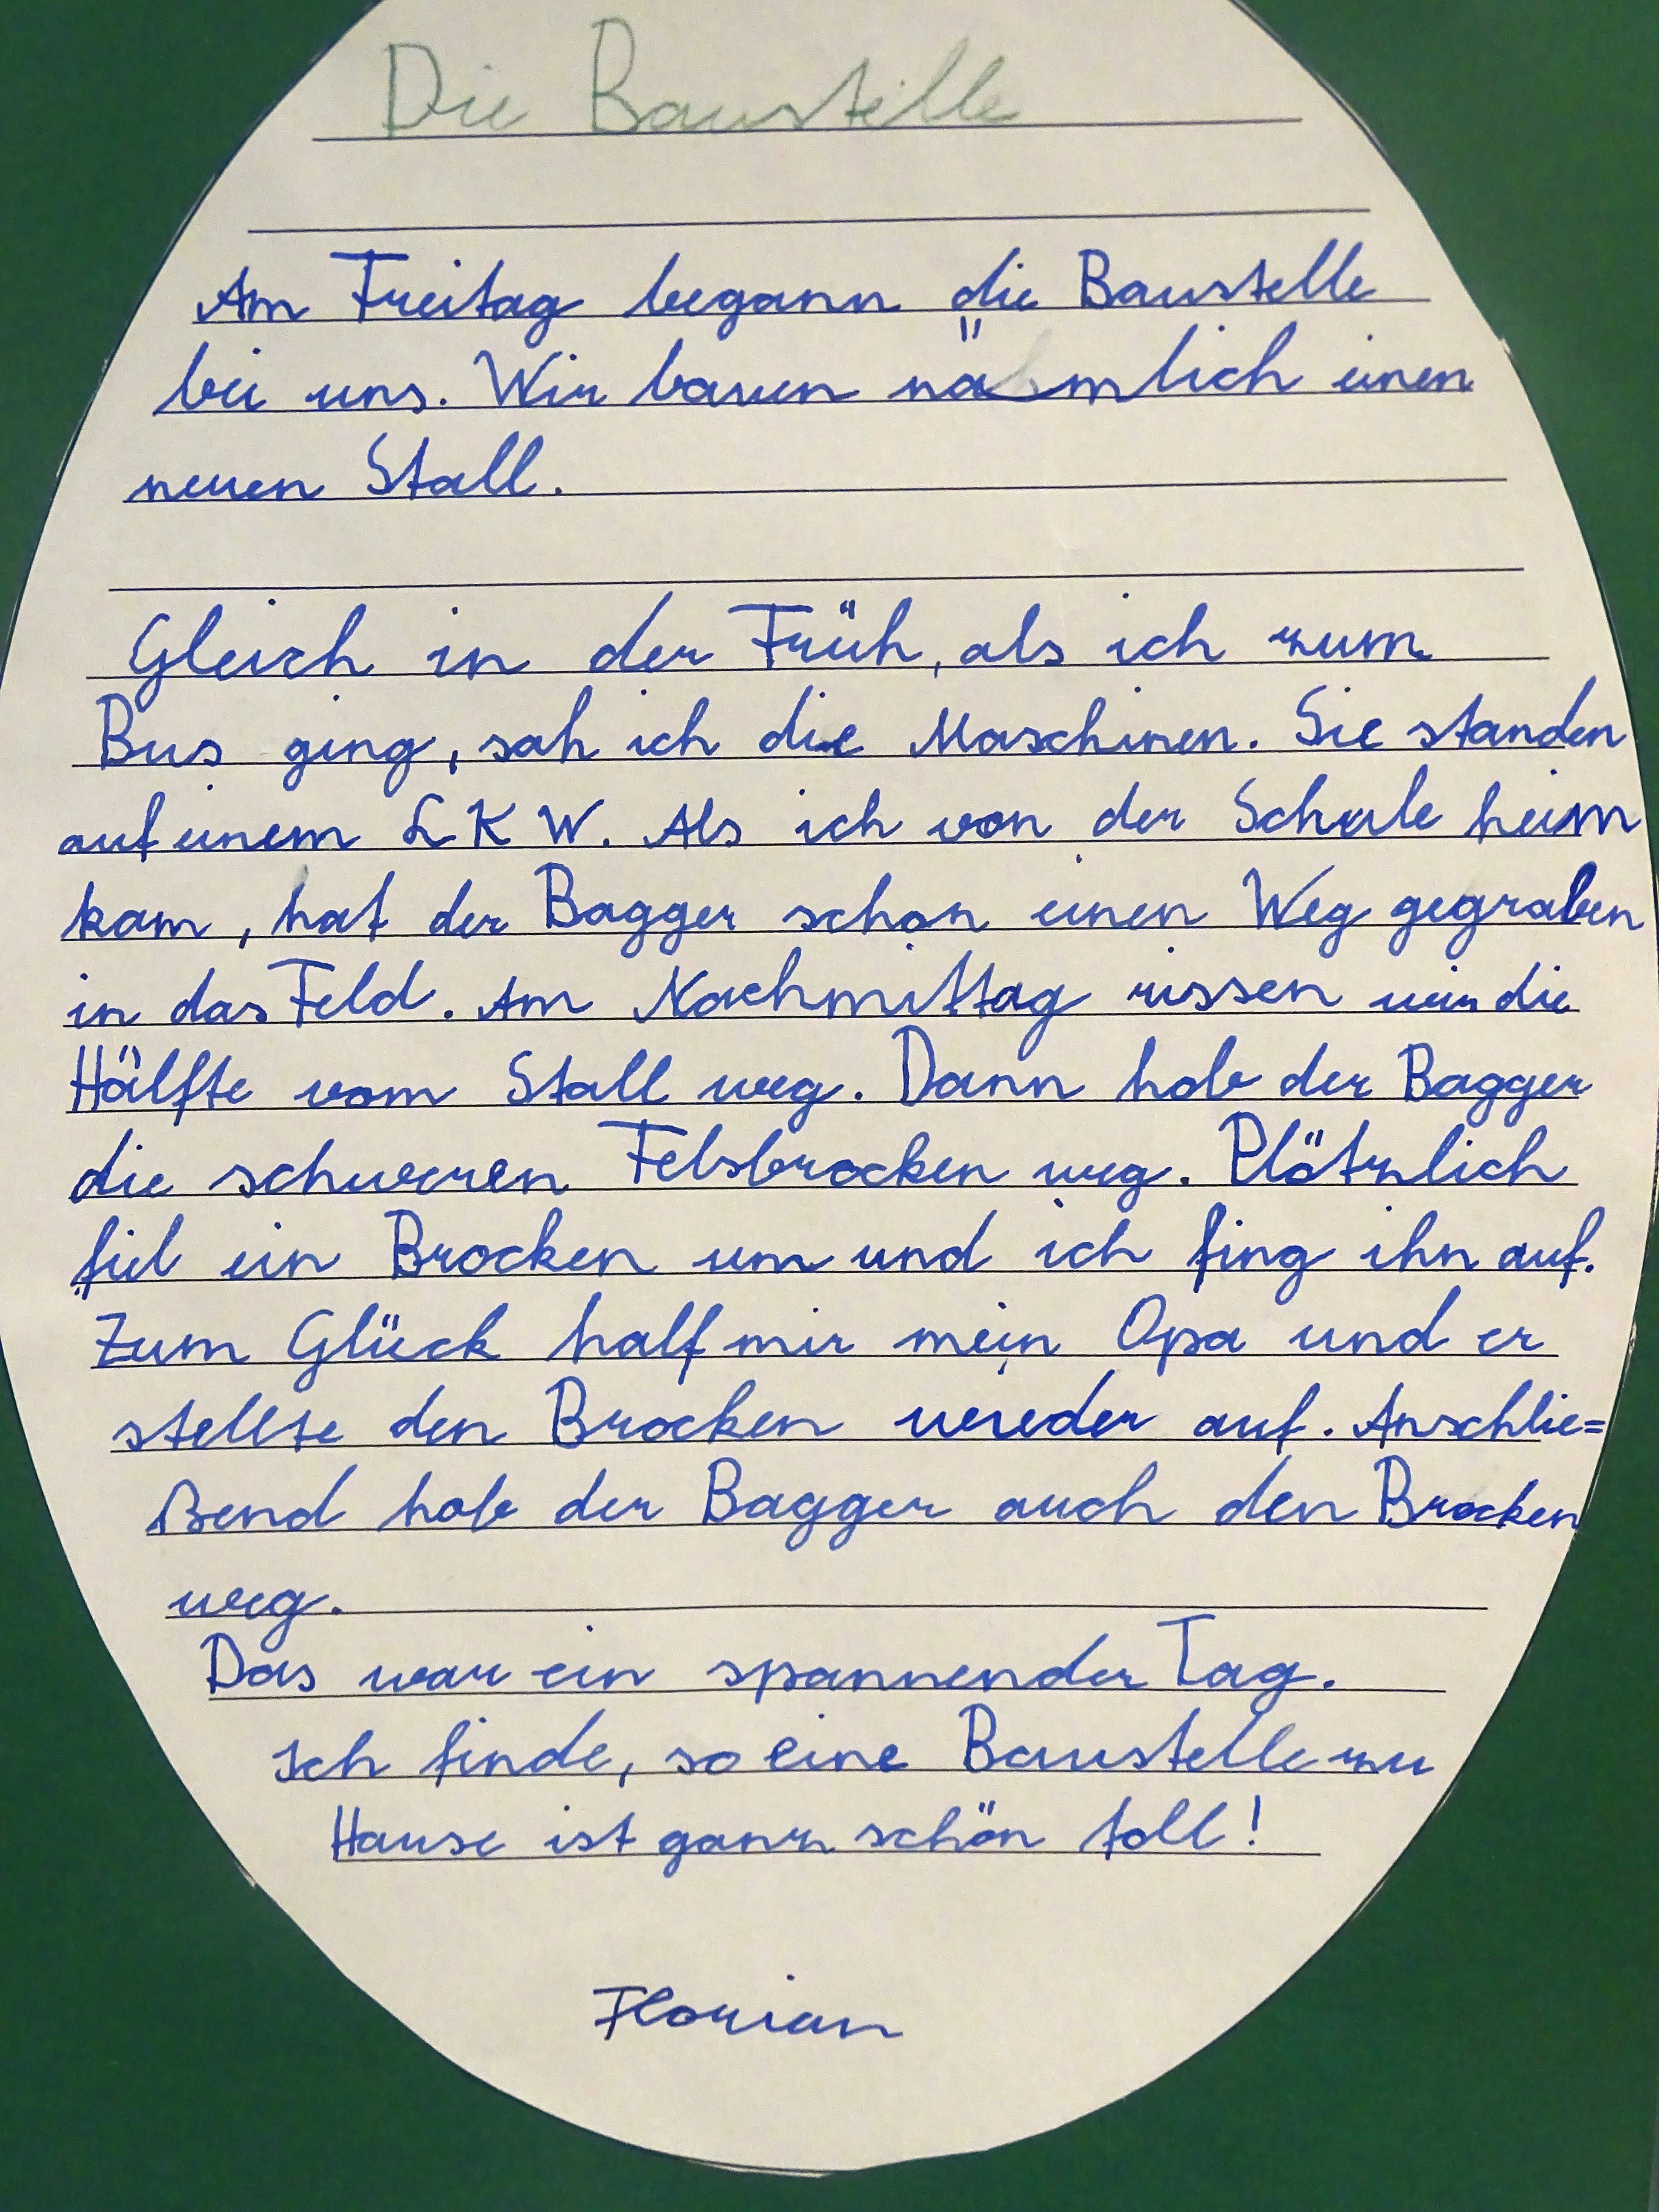 Die Baustelle
Am Freitag begann die Baustelle
bei uns. Wir bauen nämlich einen
neuen Stall.
Gleich in der Früh, als ich zum
Bus ging, sah ich die Maschinen. Sie standen
auf einem LKW. Als ich von der Schule heim
kam, hat der Bagger schon einen Weg gegraben
in das Feld. Am Nachmittag rissen wir die
Hälfte vom Stall weg. Dann hob der Bagger
die schweren Felsbrocken weg. Plötzlich
fiel ein Brocken um und ich fing ihn auf.
Zum Glück half mir mein Opa und er
stellte den Brocken wieder auf. Anschlie=
ßend hob der Bagger auch den Brocken
weg.
Das war ein spannender Tag.
Ich finde, so eine Baustelle zu
Hause ist ganz schön toll!
Florian